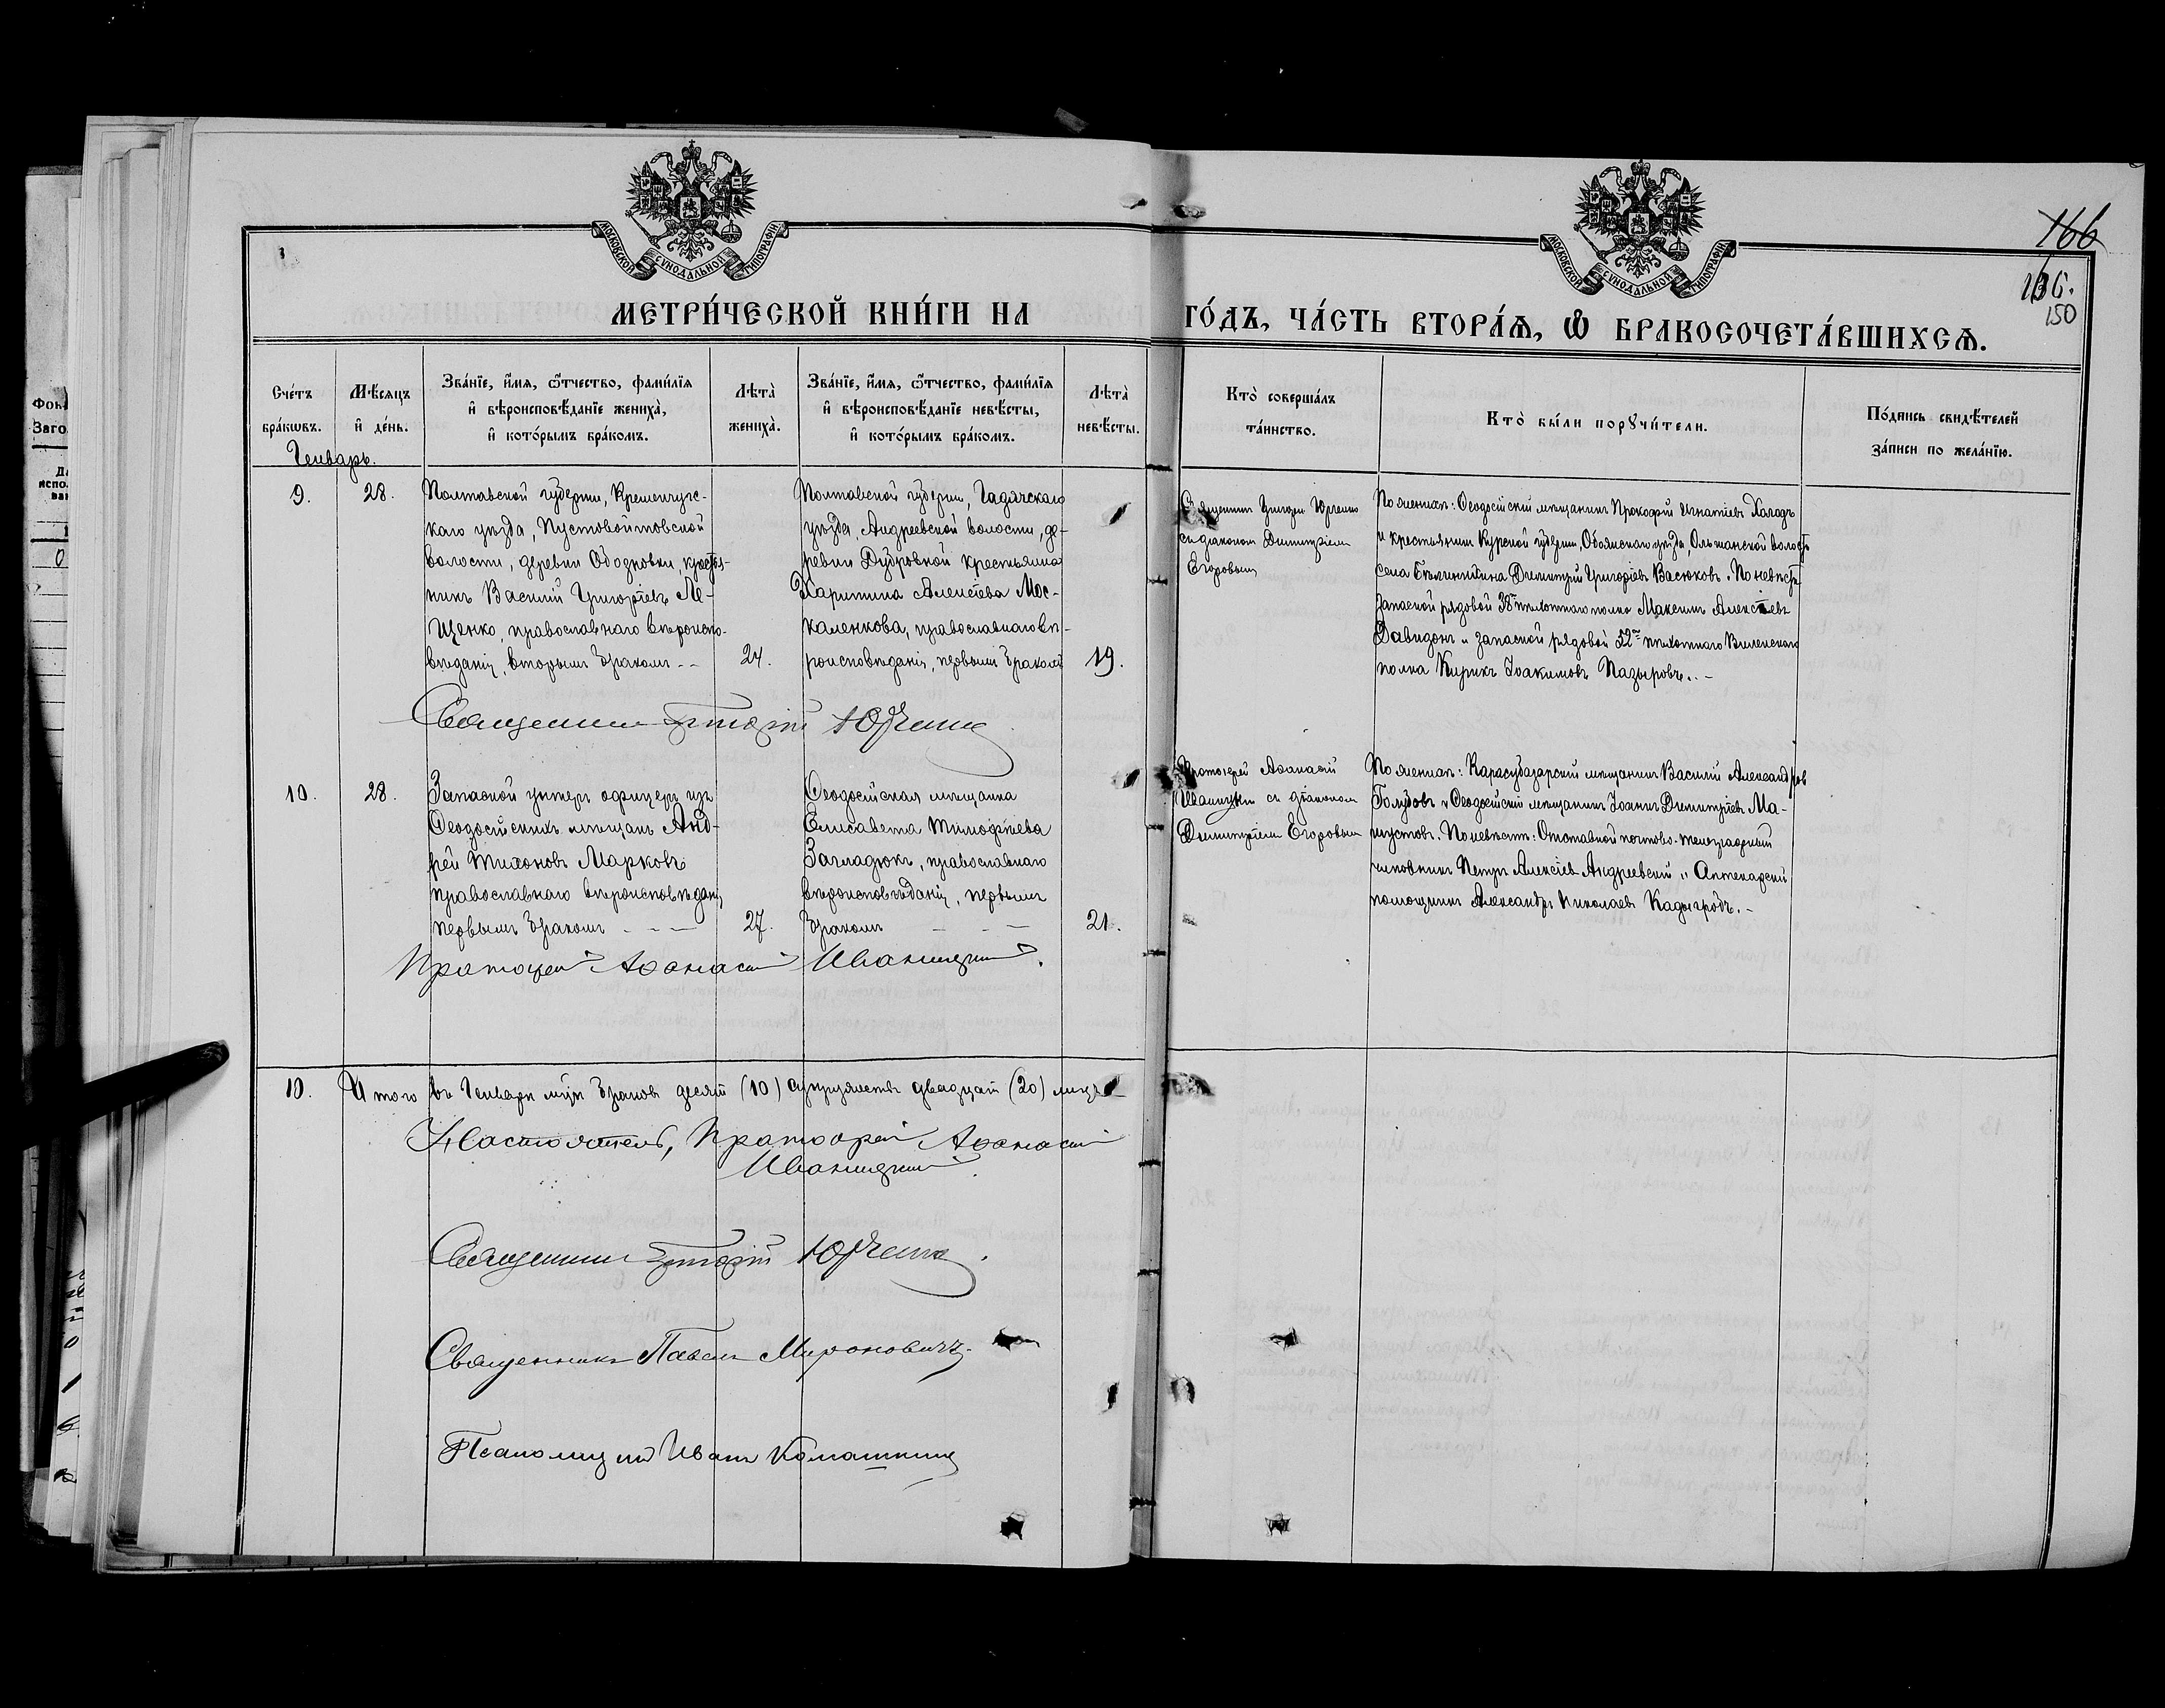 МОСКОВСКОЙ СѴНОДАЛЬНОЙ ТИПОГРАФІИ
МОСКОВСКОЙ СѴНОДАЛЬНОЙ ТИПОГРАФІИ
166
150
МЕТРИ́ЧЕСКОЙ КНИ́ГИ НА ГО́ДЪ, ЧА́СТЬ ВТОРА́Ѧ, Ѡ҆ БРАКОСОЧЕТА́ВШИХСѦ.
Сче́тъ бра́кѡвъ.
Мѣ́сяцъ и҆ де́нь.
Зва́нїе, и҆́мя, ѻ҆́тчество, фами́лїя
и҆ вѣроисповѣ́данїе жениха̀,
и҆ кото́рымъ бра́комъ.
Лѣта̀ жениха̀.
Зва́нїе, и҆́мя, ѻ҆́тчество, фами́лїя
и҆ вѣроисповѣ́данїе невѣ́сты,
и҆ кото́рымъ бра́комъ.
Лѣта̀ невѣ́сты.
Кто̀ соверша́лъ
та́инство.
Кто̀ бы́ли порꙋчи́тели.
По́дпись свидѣ́телей
за́писи по жела́нїю.
Генварь.
9.
28.
Полтавской губерніи, Кременчугс-
каго уѣзда, Пустовойтовской
волости, деревни Обозновки, крестья-
нинъ Василій Григоріевъ Ле-
щенко, православнаго вѣроиспо-
вѣданія, вторымъ бракомъ --
24.
Полтавской губерніи, Гадячскаго
уѣзда, Андреевской волости, де-
ревни Дубровной крестьянка
Харитина Алексіева Мос-
каленкова, православнаго вѣ-
роисповѣданія, первымъ бракомъ
19.
Священникъ Григорій Юрченко
съ діакономъ Димитріемъ
Егоровымъ
По женихѣ: Ѳеодосійскій мѣщанинъ Прокофій Игнатіевъ Халодъ
и крестьянинъ Курской губерніи, Обоянскаго уѣзда, Ольшанской волости
села Димитрій Григоріевъ Васюковъ. По невѣстѣ:
запасной рядовой 38го пѣхотнаго полка Максимъ Алексіевъ
Давидонъ и запасной рядовой 52го пѣхотнаго Виленскаго
полка Кирикъ Іоакимовъ Пазыровъ. -
Священникъ Григорій Юрченко
10.
28.
Запасной унтеръ офицеръ изъ
Ѳеодосійскихъ мѣщанъ Анд-
рей Тихоновъ Марковъ
православнаго вѣроисповѣданія,
первымъ бракомъ - - -
27.
Ѳеодосійская мѣщанка
Елисавета Тимофіева
Загладюкъ, православнаго
вѣроисповѣданія, первымъ
бракомъ - - -
21.
Протоіерей Аѳанасій
Иваницкій съ діакономъ
Димитріемъ Егоровымъ
По женихѣ: Карасубазарскій мѣщанинъ Василій Александровъ
Голубовъ и Ѳеодосійскій мѣщанинъ Іоаннъ Димитріевъ Ма-
шустовъ. По невѣстѣ: Отставной почтово-телеграфный
чиновникъ Петръ Алексіевъ Андреевскій и Аптекарскій
помощникъ Александръ Николаевъ Кадыгробъ. -
Протоіерей Аѳанасій Иваницкій.
10.
Итого въ Генварѣ мцѣ браковъ десять (10) супружествъ двадцать (20) лицъ
Настоятель, Протоіерей Аѳанасій
Иваницкій.
Священникъ Григорій Юрченко.
Священникъ Павелъ Мироновичъ.
Псаломщикъ Иванъ Комашкинъ